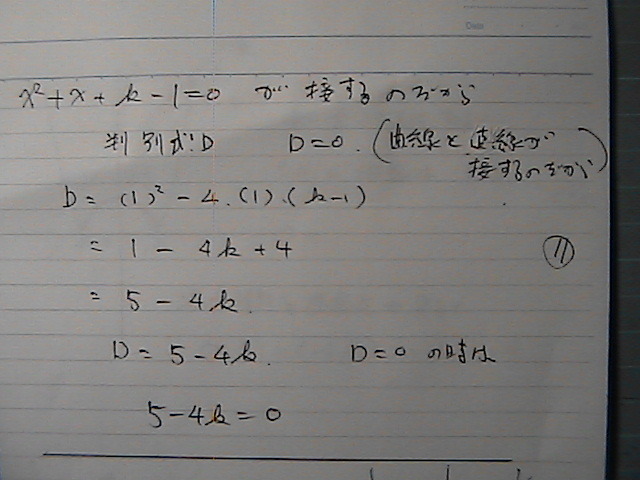 Date
x²+x+k-1=0 が 接するのだから
判別式:D D=0. (曲線と直線が
接するのだから)
D= (1)²-4.(1).(k-1)
= 1-4k+4
⑪
= 5-4k.
D=5-4k. D=0 の時は
5-4k=0